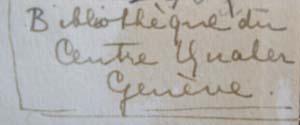 Bibliothèque du
Centre Quaker
Genève.